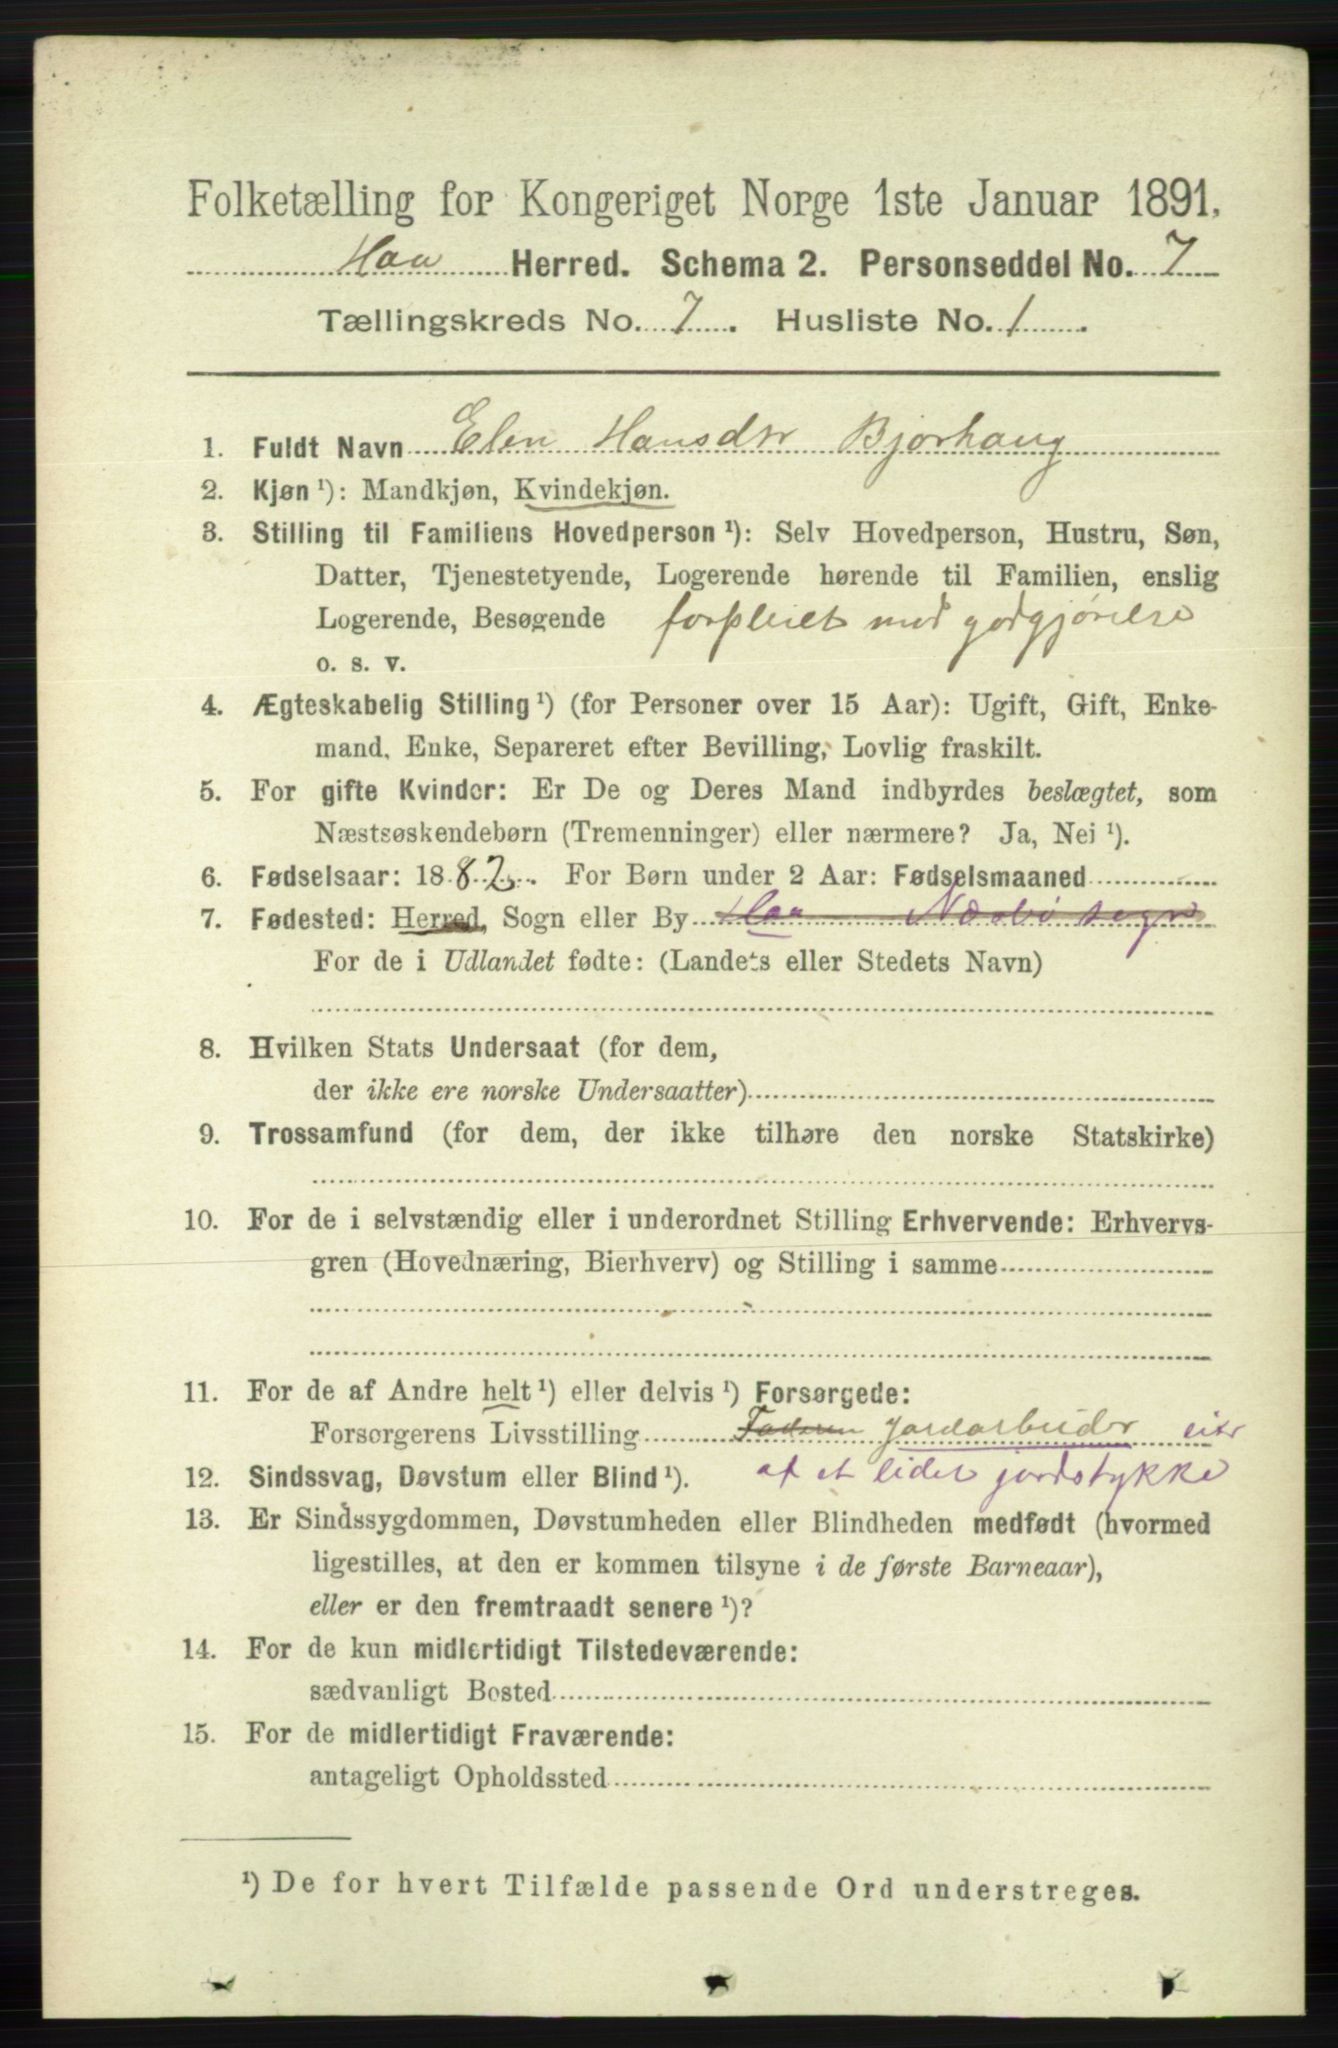 Folketælling for Kongeriget Norge 1ste Januar 1891.
Haa Herred. Schema 2. Personseddel No. 7
Tællingskreds No. 7. Husliste No. 1.
1. Fuldt Navn Elen Hansdtr Bjorhaug
2. Kjøn ¹): Mandkjøn, Kvindekjøn.
3. Stilling til Familiens Hovedperson ¹): Selv Hovedperson, Hustru, Søn,
Datter, Tjenestetyende, Logerende hørende til Familien, enslig
Logerende, Besøgende forpleiet med godgjørelse
o. s. v.
4. Ægteskabelig Stilling ¹) (for Personer over 15 Aar): Ugift, Gift, Enke-
mand, Enke, Separeret efter Bevilling, Lovlig fraskilt.
5. For gifte Kvinder: Er De og Deres Mand indbyrdes beslægtet, som
Næstsøskendebørn (Tremenninger) eller nærmere? Ja, Nei ¹).
6. Fødselsaar: 1882. For Børn under 2 Aar: Fødselsmaaned
7. Fødested: Herred, Sogn eller By Haa Nærbø sogn
For de i Udlandet fødte: (Landets eller Stedets Navn)
8. Hvilken Stats Undersaat (for dem,
der ikke ere norske Undersaatter)
9. Trossamfund (for dem, der ikke tilhøre den norske Statskirke)
10. For de i selvstændig eller i underordnet Stilling Erhvervende: Erhvervs-
gren (Hovednæring, Bierhverv) og Stilling i samme
11. For de af Andre helt ¹) eller delvis ¹) Forsørgede:
Forsørgerens Livsstilling Faderen jordarbeider eier
12. Sindssvag, Døvstum eller Blind ¹). af et lidet jordstykke
13. Er Sindssygdommen, Døvstumheden eller Blindheden medfødt (hvormed
ligestilles, at den er kommen tilsyne i de første Barneaar),
eller er den fremtraadt senere ¹)?
14. For de kun midlertidigt Tilstedeværende:
sædvanligt Bosted
15. For de midlertidigt Fraværende:
antageligt Opholdssted
¹) De for hvert Tilfælde passende Ord understreges.